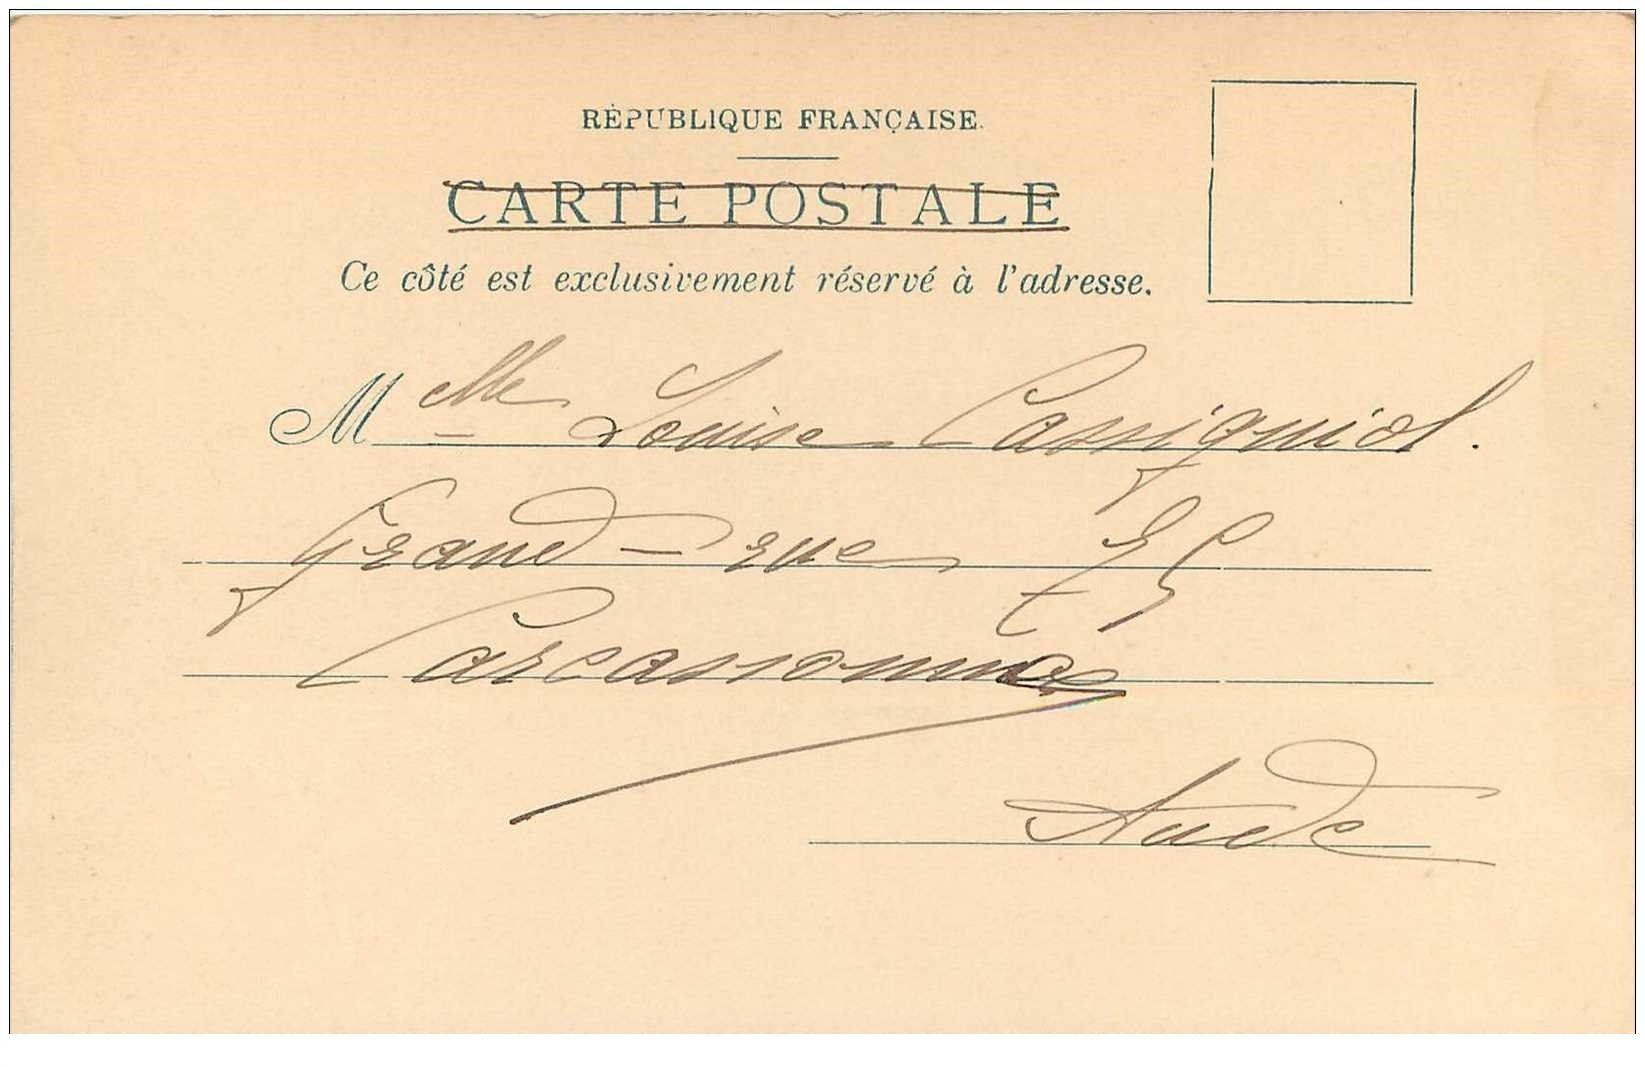 RÉPUBLIQUE FRANÇAISE.
CARTE POSTALE
Ce côté est exclusivement réservé à l'adresse.
Mlle Louise Cassignol.
Grand-rue 75
Carcassonne
Aude